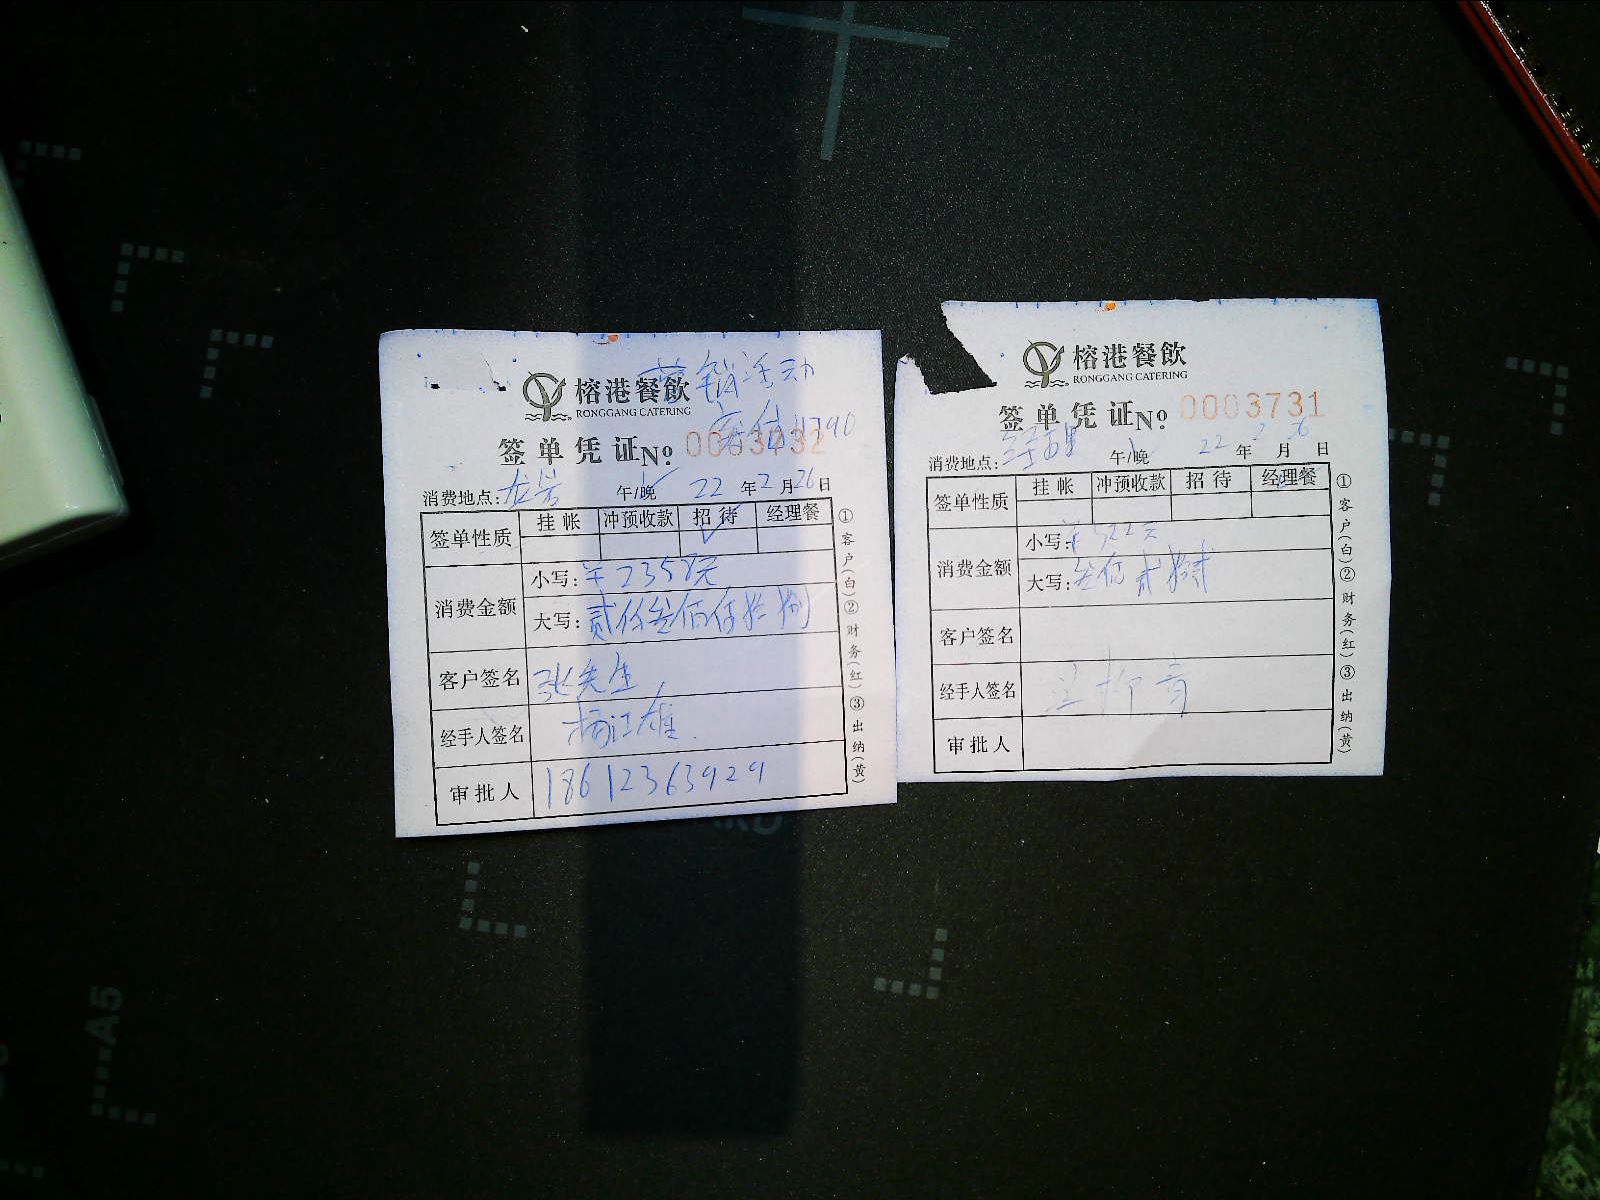 营销活动
榕港餐飲
RONGGANG CATERING
签单凭证No. 0003732
消费地点: 午/晚 22年2月26日
签单性质 挂帐 冲预收款 招待 经理餐
消费金额
小写:¥2358元
大写:贰仟叁佰伍拾捌
客户签名 张先生
经手人签名 杨江雄
审批人 18612363929
①客户(白)②财务(红)③出纳(黄)
榕港餐飲
RONGGANG CATERING
签单凭证No. 0003731
消费地点: 午/晚 22年2月26日
签单性质 挂帐 冲预收款 招待 经理餐
消费金额
小写:¥322元
大写:叁佰贰拾贰
客户签名
经手人签名
审批人
①客户(白)②财务(红)③出纳(黄)
A5